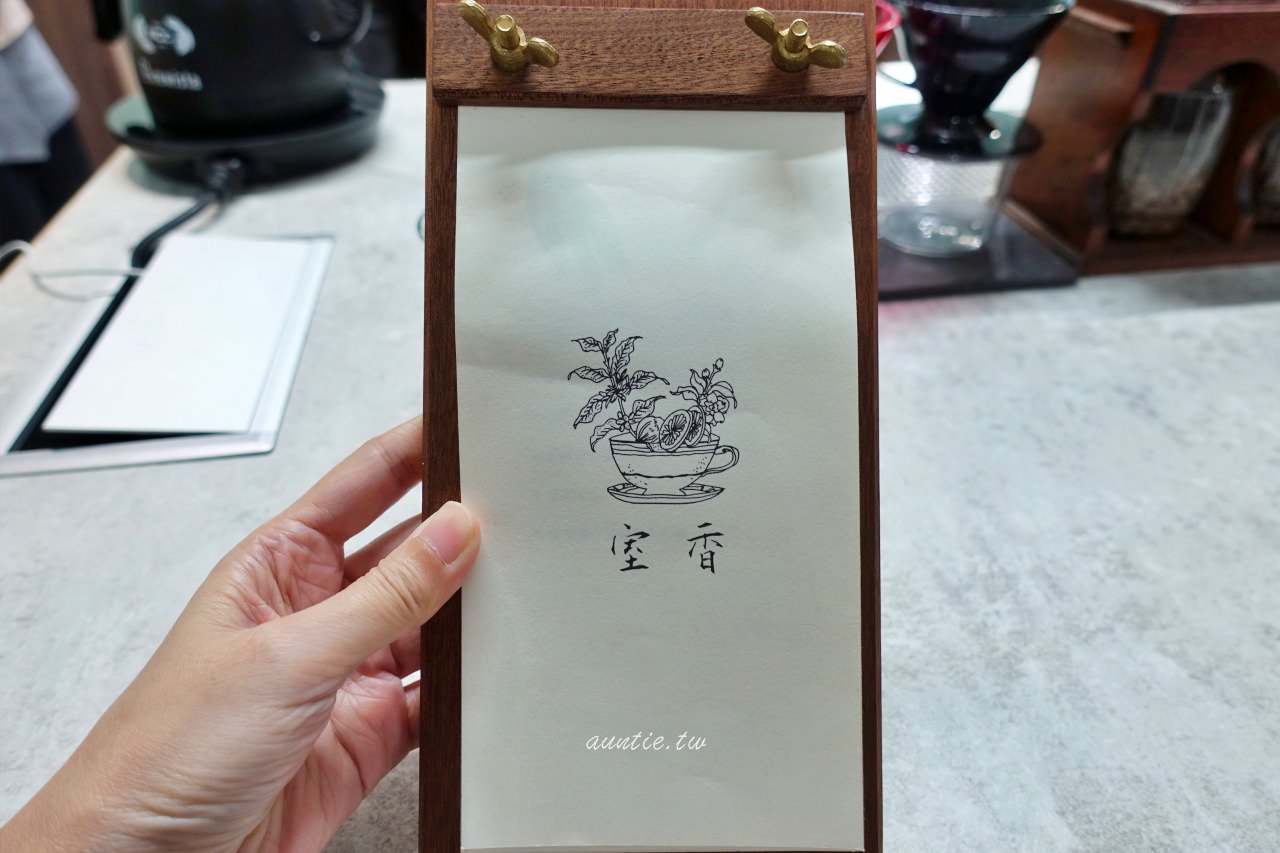 室香
auntie.tw